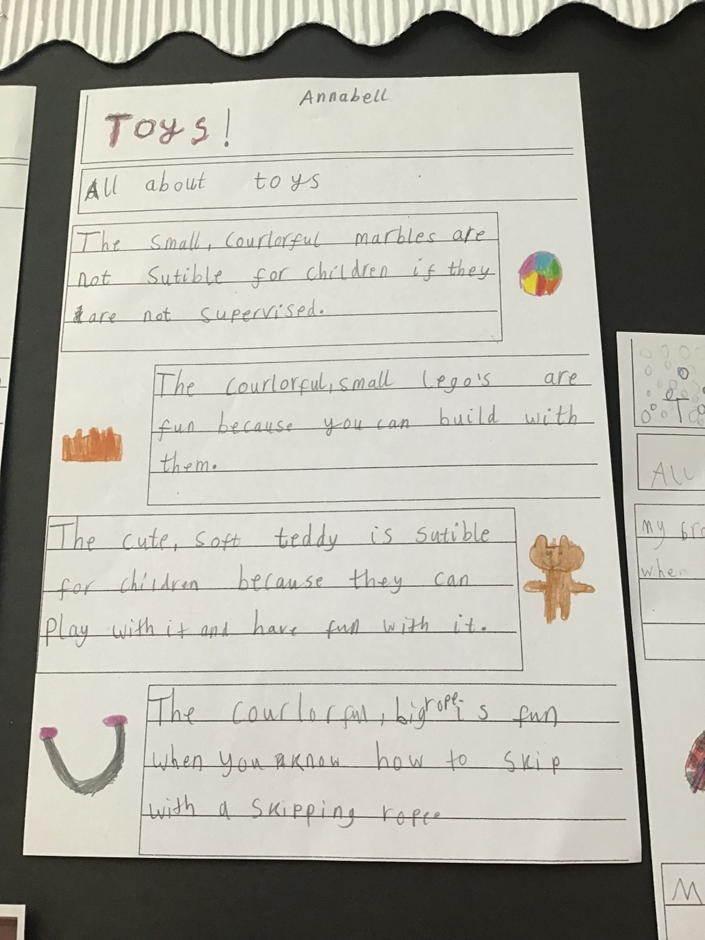 Annabell
Toys!
All about toys
The small, courlorful marbles are
not sutible for children if they
are not supervised.
The courlorful, small lego's are
fun because you can build with
them.
The cute, soft teddy is sutible
for children because they can
play with it and have fun with it.
The courlorful, big rope is fun
when you know how to skip
with a skipping rope
All
my
when
M